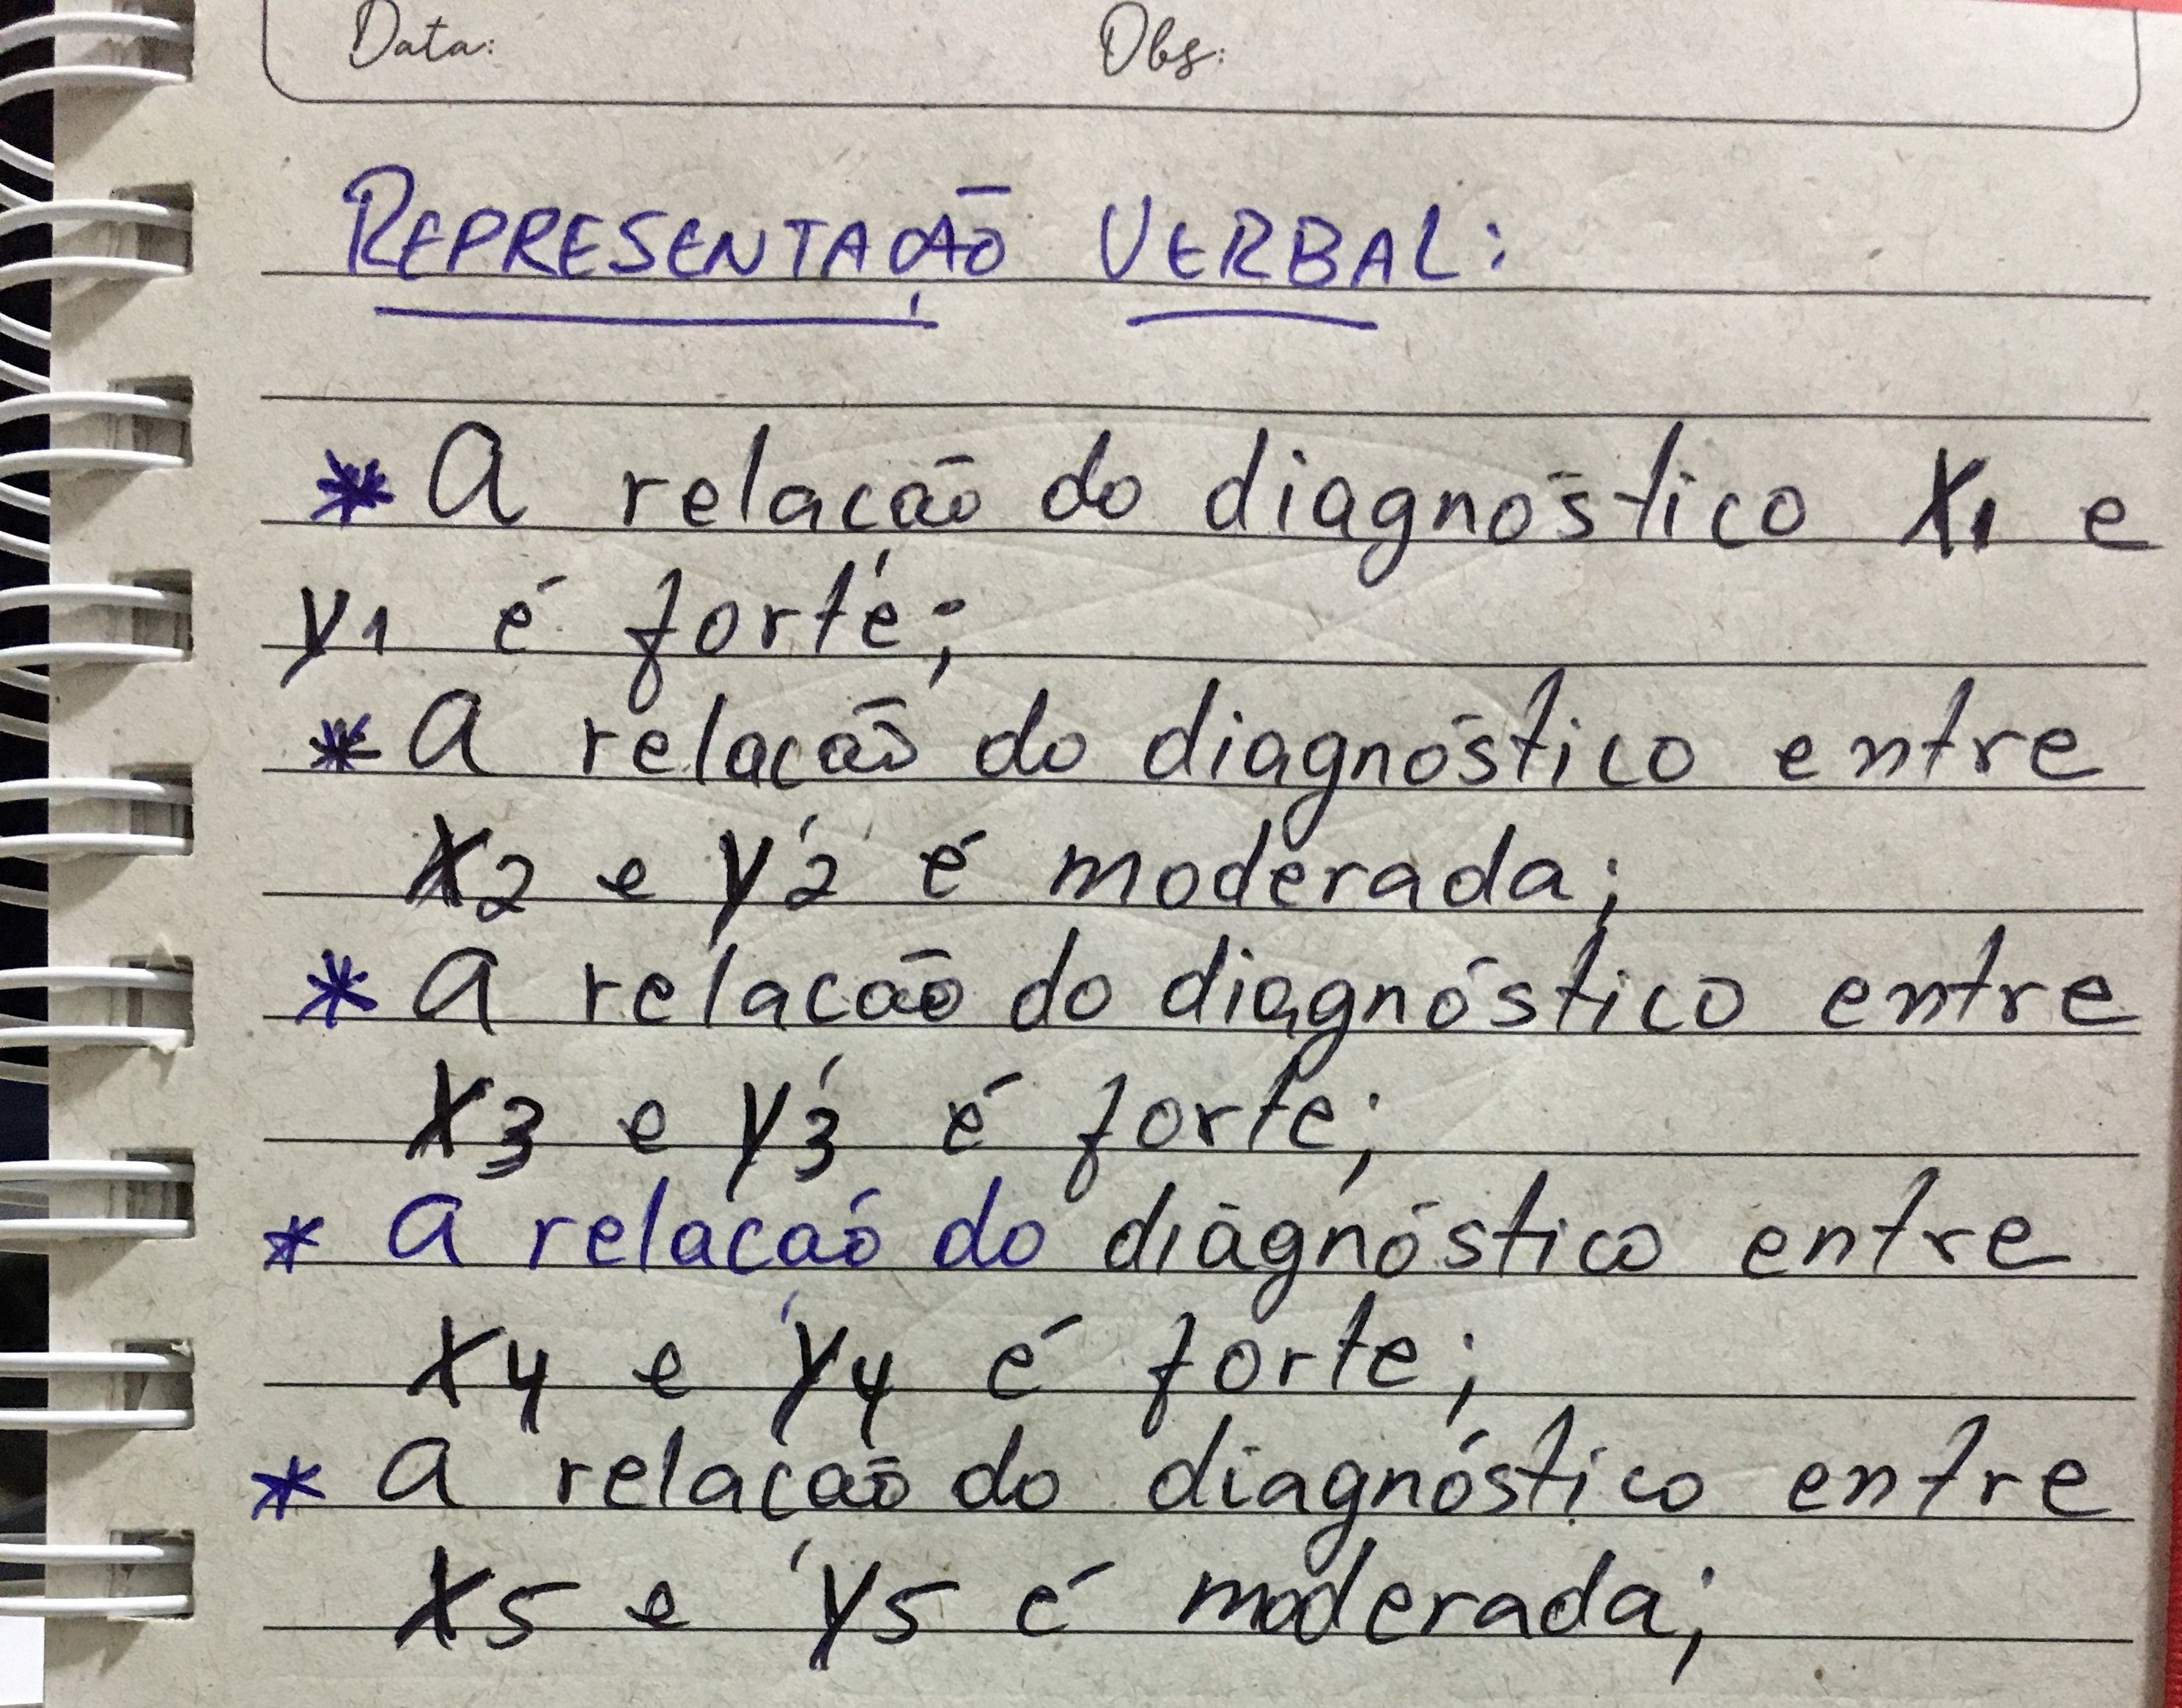 Data: Obs:
REPRESENTAÇÃO VERBAL:
* A relação do diagnóstico X1 e
Y1 é forte;
* A relação do diagnóstico entre
X2 e Y2 é moderada;
* A relação do diagnóstico entre
X3 e Y3 é forte;
* A relação do diagnóstico entre
X4 e Y4 é forte;
* A relação do diagnóstico entre
X5 e Y5 é moderada;